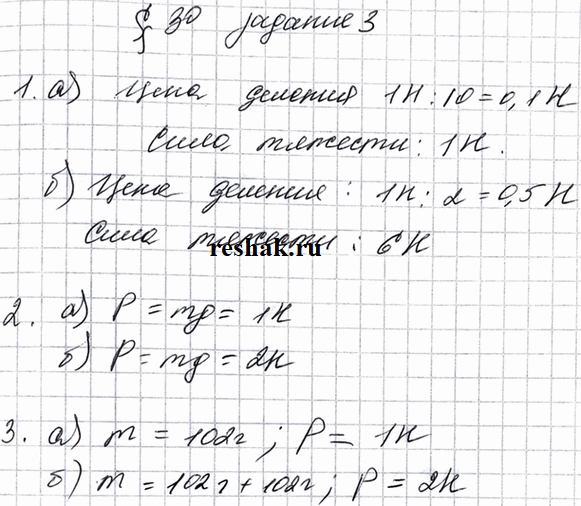 § 30 задание 3
1. а) Цена деления 1Н : 10 = 0,1Н
Сила тяжести : 1Н.
б) Цена деления : 1Н : 2 = 0,5Н
Сила тяжести : 6Н
reshak.ru
2. а) P = mg = 1Н
б) P = mg = 2Н
3. а) m = 102г ; P = 1Н
б) m = 102г + 102г ; P = 2Н